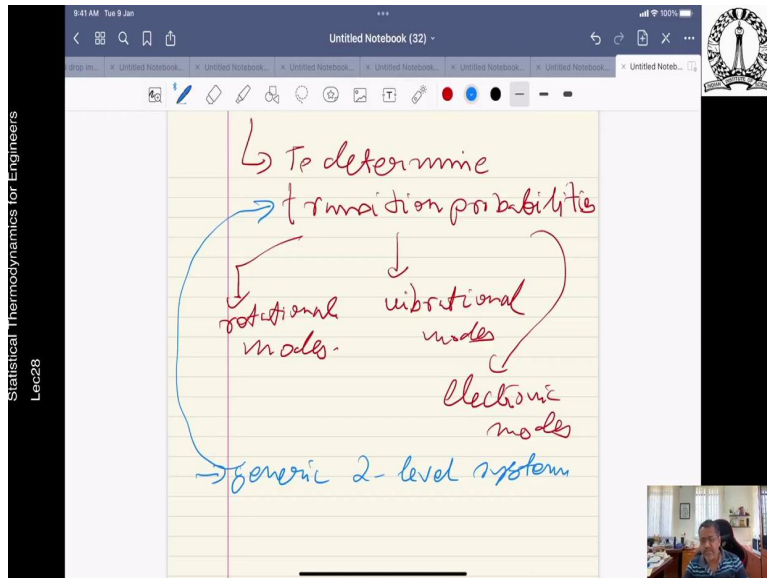 9:41 AM Tue 9 Jan
100%
Untitled Notebook (32)
drop im...
× Untitled Notebook...
× Untitled Notebook...
× Untitled Notebook...
× Untitled Notebook...
× Untitled Notebook...
× Untitled Noteb...
Statistical Thermodynamics for Engineers
Lec28
To determine
transition probabilities
rotational
modes.
vibrational
modes
electronic
modes
generic 2-level system